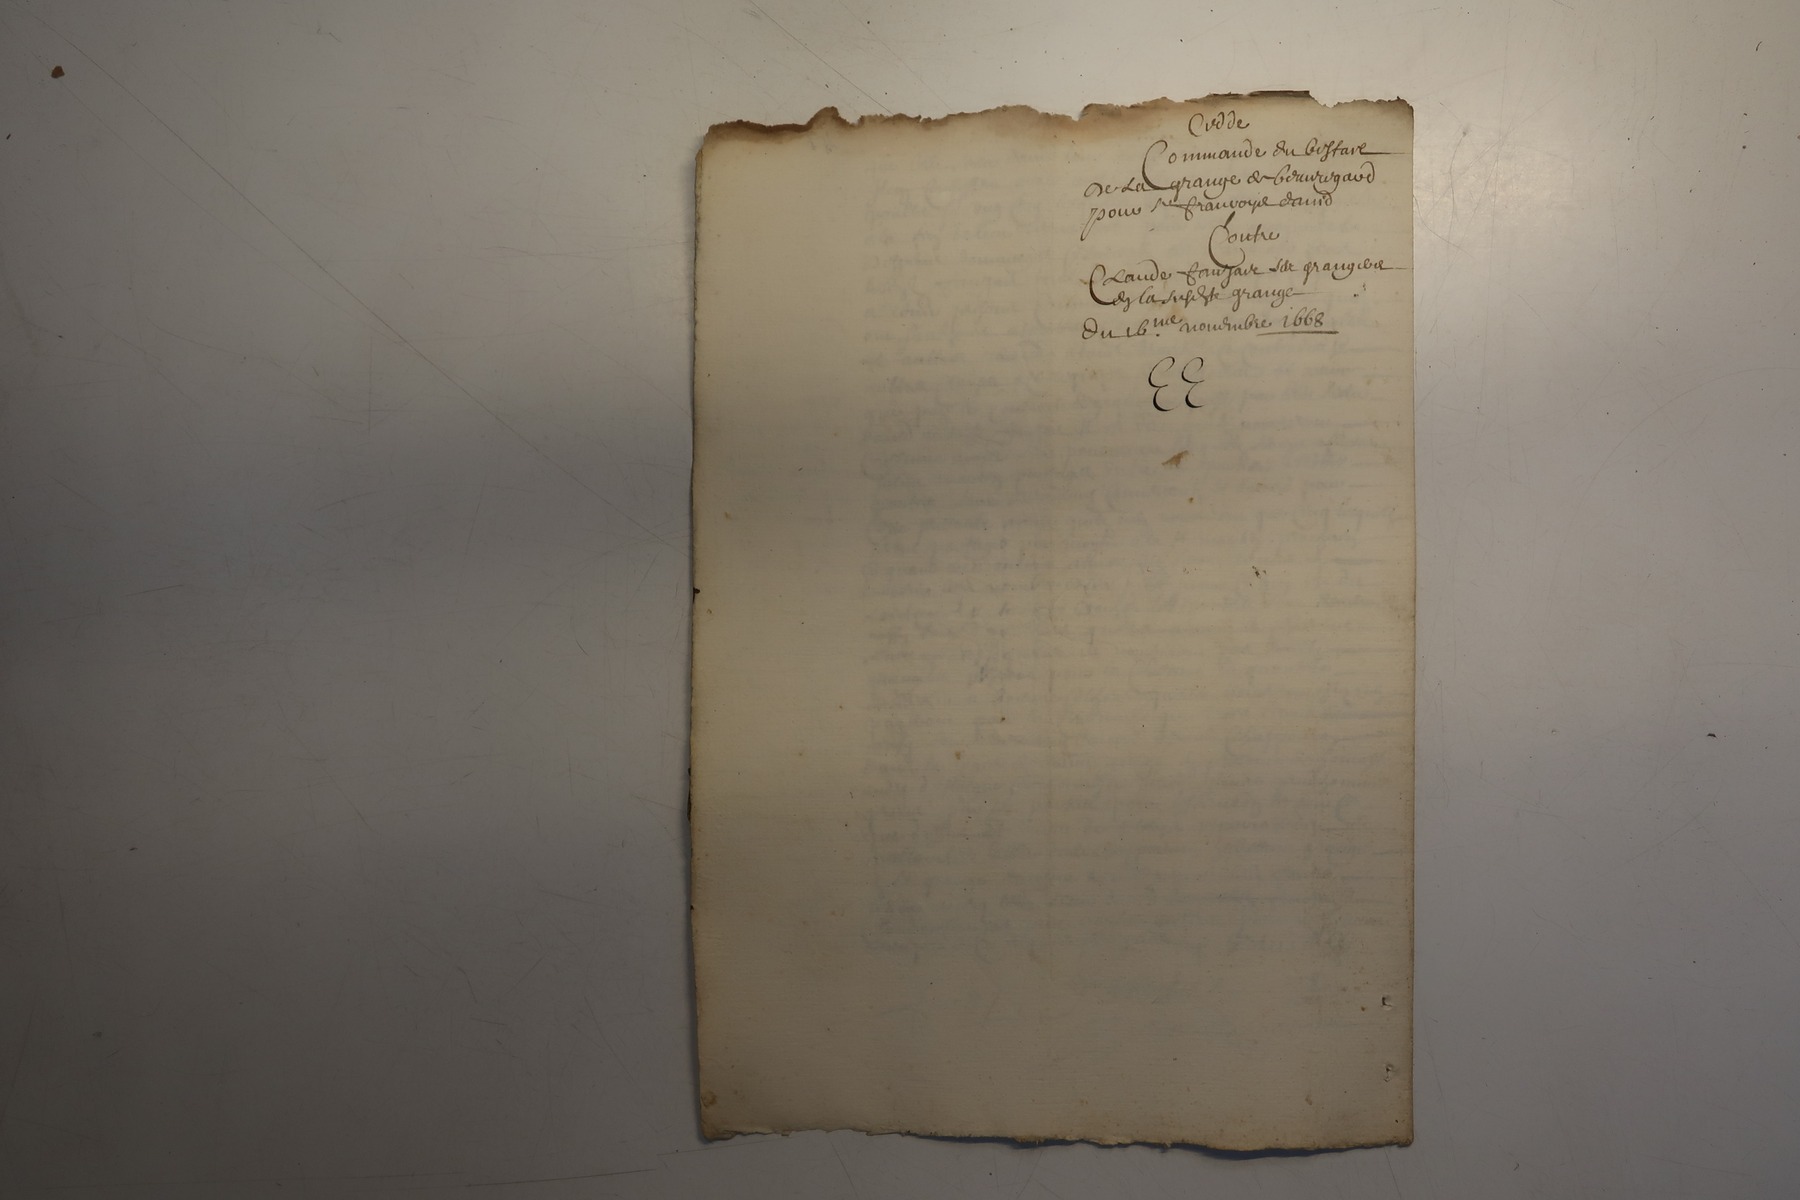 Cedde
Commande du bestare
De La grange de beauregard
pour sr francoys david
Contre
Claude fauzare dit grangeve
de la susdte grange
du 16.me novembre 1668
EE